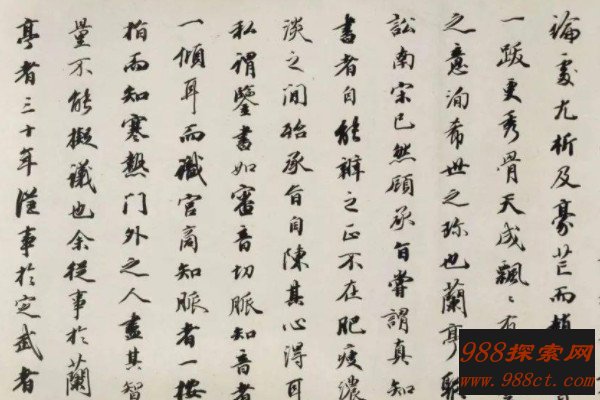 論處尤析及豪芒而趙
一跋更秀骨天成飄〻有
之意洵希世之珎也蘭亭聚
訟南宋已然顧承旨嘗謂真知
書者自能辨之正不在肥瘦濃
淡之間殆承旨自陳其心得耳
私謂鑒書如審音切脈知音者
一傾耳而識宮商知脈者一按
指而知寒熱門外之人盡其智
量不能擬議也余從事於蘭
亭者三十年從事於定武者
988探索网
www.988ct.com